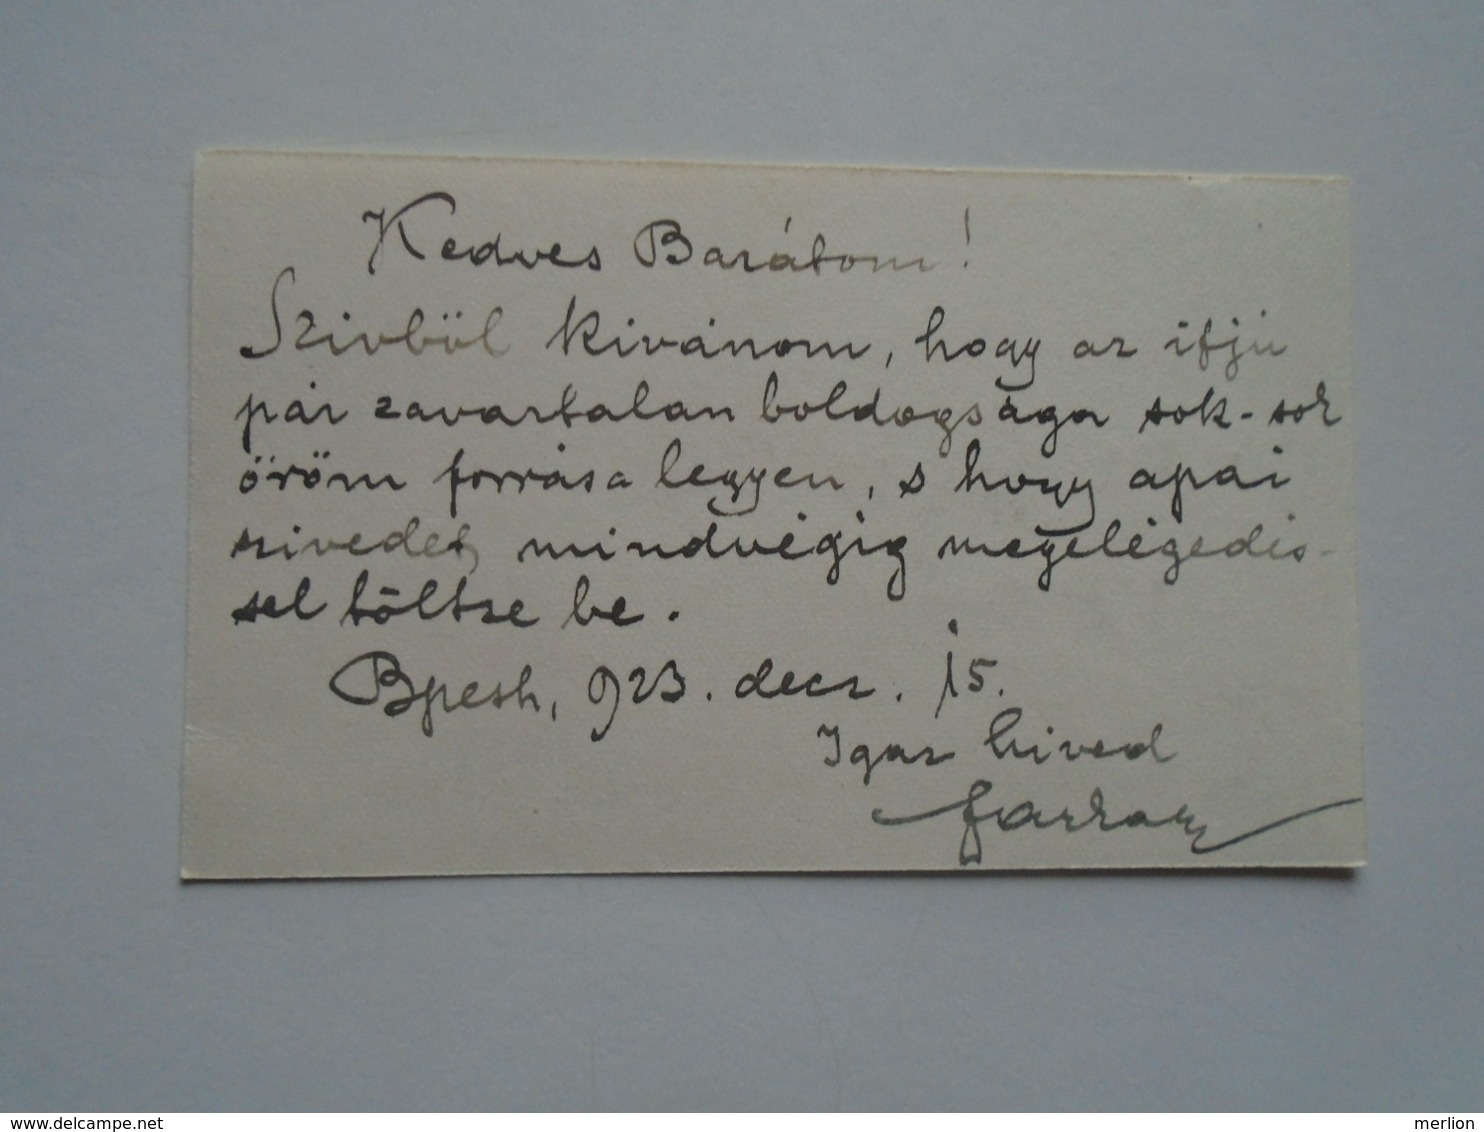 Kedves Barátom!
Szivből kivánom, hogy az ifju
pár zavartalan boldogsága sok-sok
öröm forrása legyen, s hogy apai
szivedet mindvégig megelégedés-
sel töltse be.
Bpesh, 923. decz. 15.
Igaz hived
delcampe.net
merlion